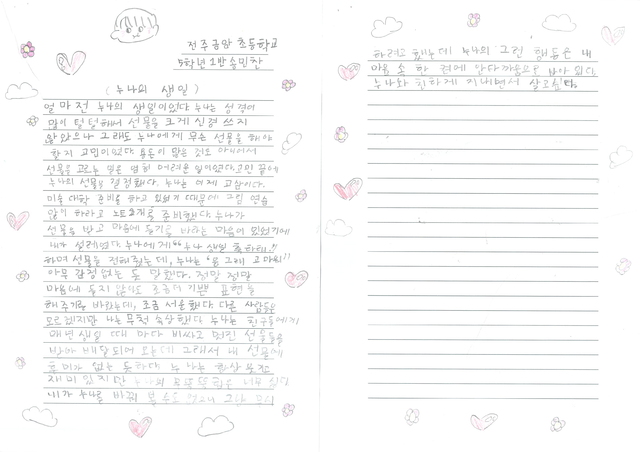 전주금암 초등학교
5학년 2반 송민찬
(누나의 생일)
얼마전 누나의 생일이었다 누나는 성격이
많이 털털해서 선물을 크게 신경 쓰지
않았으나 그래도 누나에게 무슨 선물을 해야
할지 고민이었다. 용돈이 많은 것도 아니어서
선물을 고르는 일은 어려운 일이었다. 고민 끝에
누나의 선물을 결정했다. 누나는 이제 고삼이다.
미술 대학 준비를 하고 있었기 때문에 그림 연습
많이 하라고 노트 준비했다. 누나가
선물을 받고 마음에 들기를 바라는 마음이 있었기에
내가 설레였다. 누나에게 "누나 생일 축하해!!
하며 선물을 전해줬는데, 누나는 '응 그래 고마워'
아무 감정 없는 듯 말했다. 정말 정말
마음에 들지 않아도 조금더 기쁜 표현을
해주기를 바라는데, 조금 서운했다. 다른 사람들은
모르겠지만 나는 무척 속상했다. 누나는 친구들에게
매년 생일 때 마다 비싸고 멋진 선물들을
받아 배달되어 오는데 그래서 내 선물에
흥미가 없는 듯하다. 누나는 항상
재미있지만 누나의 너무 싫다
내가 누나를 바꿔 수도 없으니 그냥 무시
하려고 했는데 누나의 그런 행동은 내
마음 속 한 켠에 안타까움으로 남아 있다.
누나와 친하게 지내면서 살고싶다.